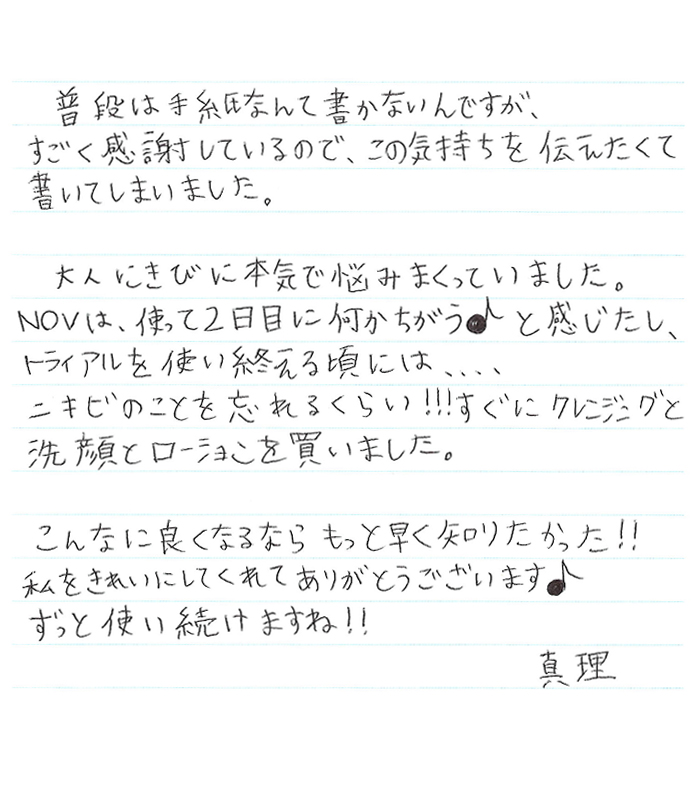 普段は手紙なんて書かないんですが、
すごく感謝しているので、この気持ちを伝えたくて
書いてしまいました。
大人にきびに本気で悩みまくっていました。
NOVは、使って2日目に何かちがう♪と感じたし、
トライアルを使い終える頃には、、、、
ニキビのことを忘れるくらい!!!すぐにクレンジングと
洗顔とローションを買いました。
こんなに良くなるなら もっと早く知りたかった!!
私をきれいにしてくれてありがとうございます♪
ずっと使い続けますね!!
真理